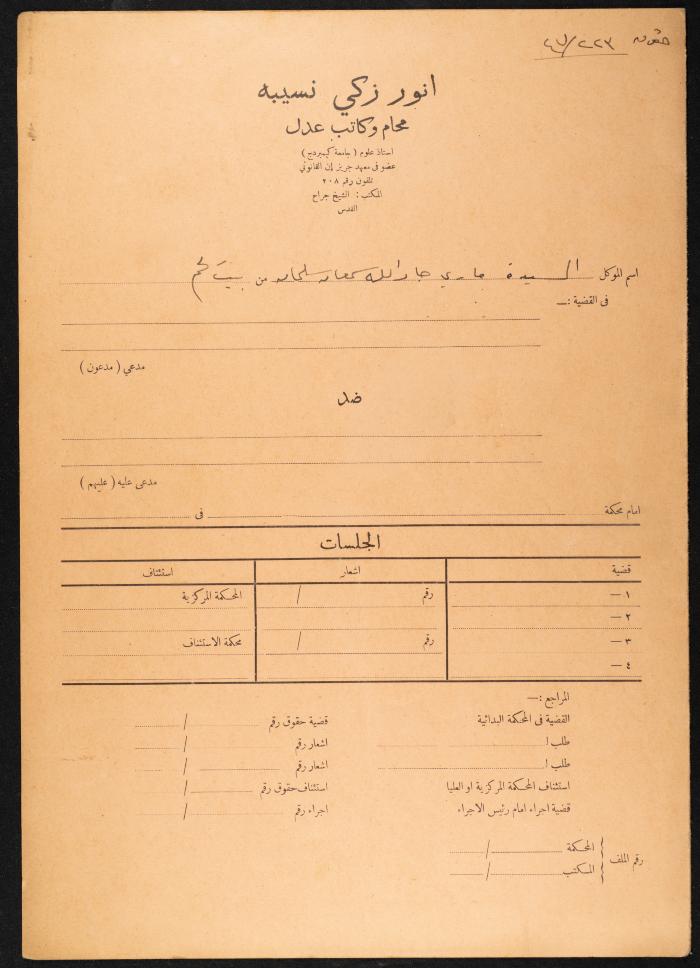 ٢٢٣/٤٧
انور زكي نسيبه
محام وكاتب عدل
استاذ علوم (جامعة كيمبردج)
عضو فى معهد جريز إن القانوني
تلفون رقم ٢٠٨
المكتب: الشيخ جراح
القدس
اسم الموكل السيدة ماري جادالله سمعان سلمان من بيت لحم
فى القضية :—
مدعي (مدعون)
ضد
مدعى عليه (عليهم)
امام محكمة فى
الجلسات
قضية اشعار استئناف
١ — رقم / المحكمة المركزية
٢ —
٣ — رقم / محكمة الاستئناف
٤ —
المراجع :—
القضية فى المحكمة البدائية قضية حقوق رقم /
طلب ا اشعار رقم /
طلب ا اشعار رقم /
استئناف المحكمة المركزية او العليا استئناف حقوق رقم /
قضية اجراء امام رئيس الاجراء اجراء رقم /
رقم الملف
المحكمة /
المكتب /